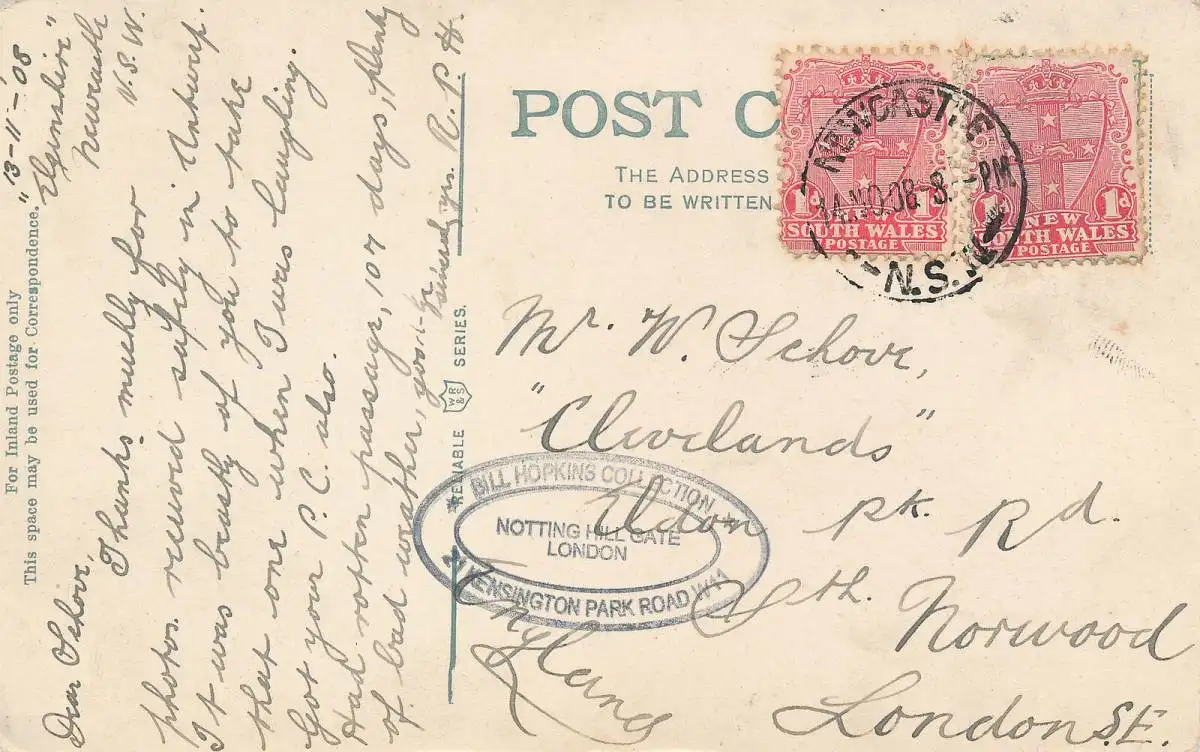 POST C
THE ADDRESS
TO BE WRITTEN
NEWCASTLE
14.NO.08 8 - PM
N.S.W
1d
SOUTH WALES
POSTAGE
1d
NEW
SOUTH WALES
POSTAGE
For Inland Postage only
This space may be used for Correspondence.
"13-11-'08
Newcastle
N.S.W.
Dear Schove,
Thanks muchly for
photos. received safely in Antwerp.
It was beastly of you to take
that one when I was laughing.
Got your P.C. also.
Had rotten passage, 107 days, plenty
of bad weather,
Sincerely yrs. R.P.H.
RELIABLE WR&S SERIES.
Mr. W. Schove,
"Clevelands"
Eldon pk. Rd.
Sth. Norwood
London SE.
England
BILL HOPKINS COLLECTION
NOTTING HILL GATE
LONDON
KENSINGTON PARK ROAD W11